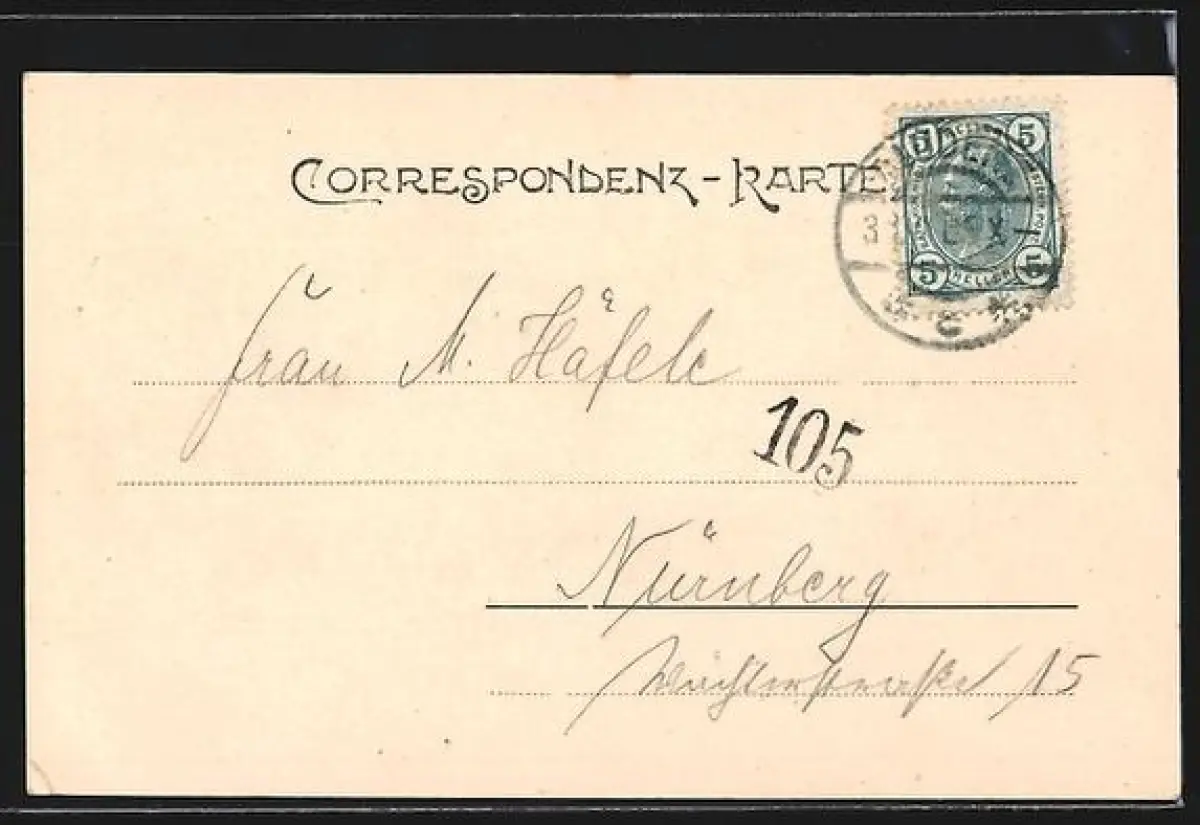 CORRESPONDENZ-KARTE
5 5
5 5
HELLER
Frau M. Häfele
105
Nürnberg
15